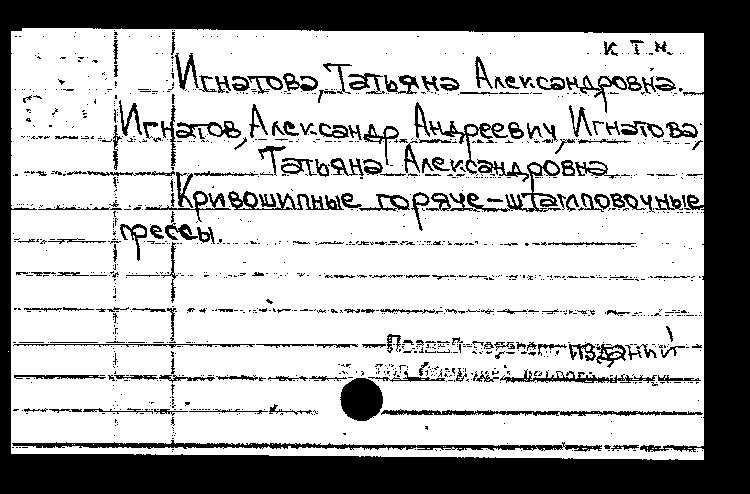 к т н.
Игнатова, Татьяна Александровна.
Игнатов, Александр Андреевич, Игнатова,
Татьяна Александровна
Кривошипные горяче-штамповочные
прессы.
Полный перечень изданий